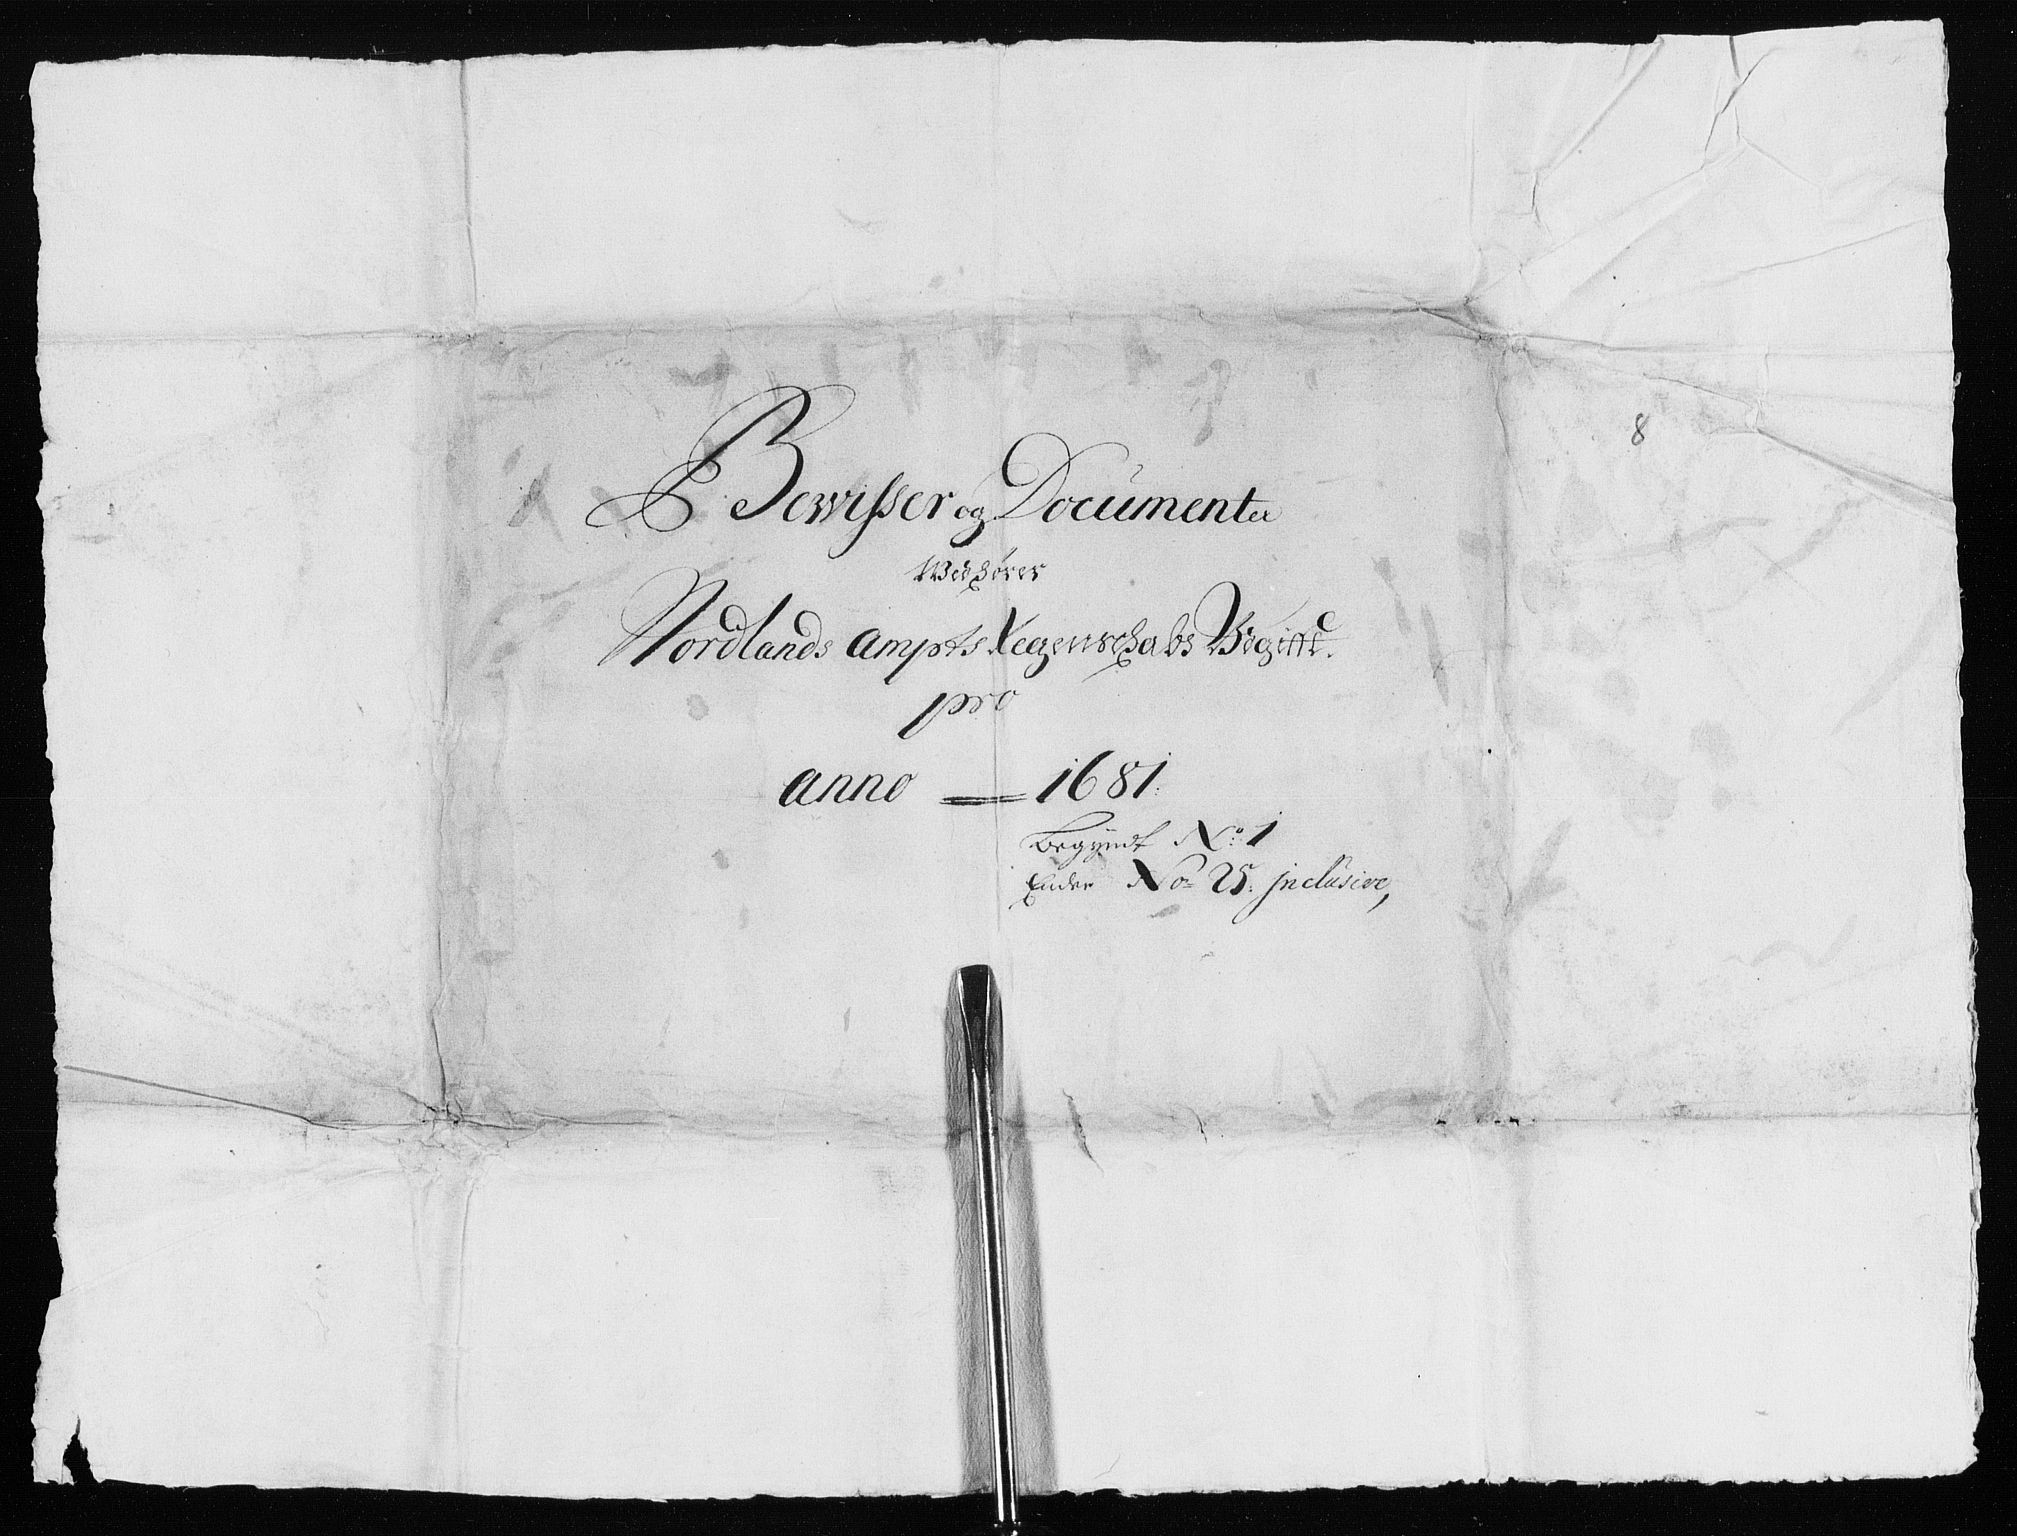 Bewisser og Documenter
Wedhører
Nordlands ampts Regenschabs Udgifft.
pro
anno 1681.
Begyndt No: 1
Ender No: 25. jnclusive,
8